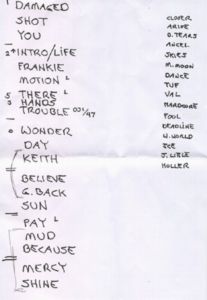 DAMAGED
SHOT
YOU
2 INTRO/LIFE
FRANKIE
MOTION L
5 THERE L
5 HANDS
TROUBLE
WONDER
DAY
KEITH
BELIEVE
G. BACK
SUN
PAY L
MUD
BECAUSE
MERCY
SHINE
CLOVER
ARISE
D. TEARS
ANGEL
SKIES
M. MOON
DANCE
TUF
VAL
HARDCORE
FOOL
DEADLINE
W. WORLD
ICE
J. LITTLE
HOLLER